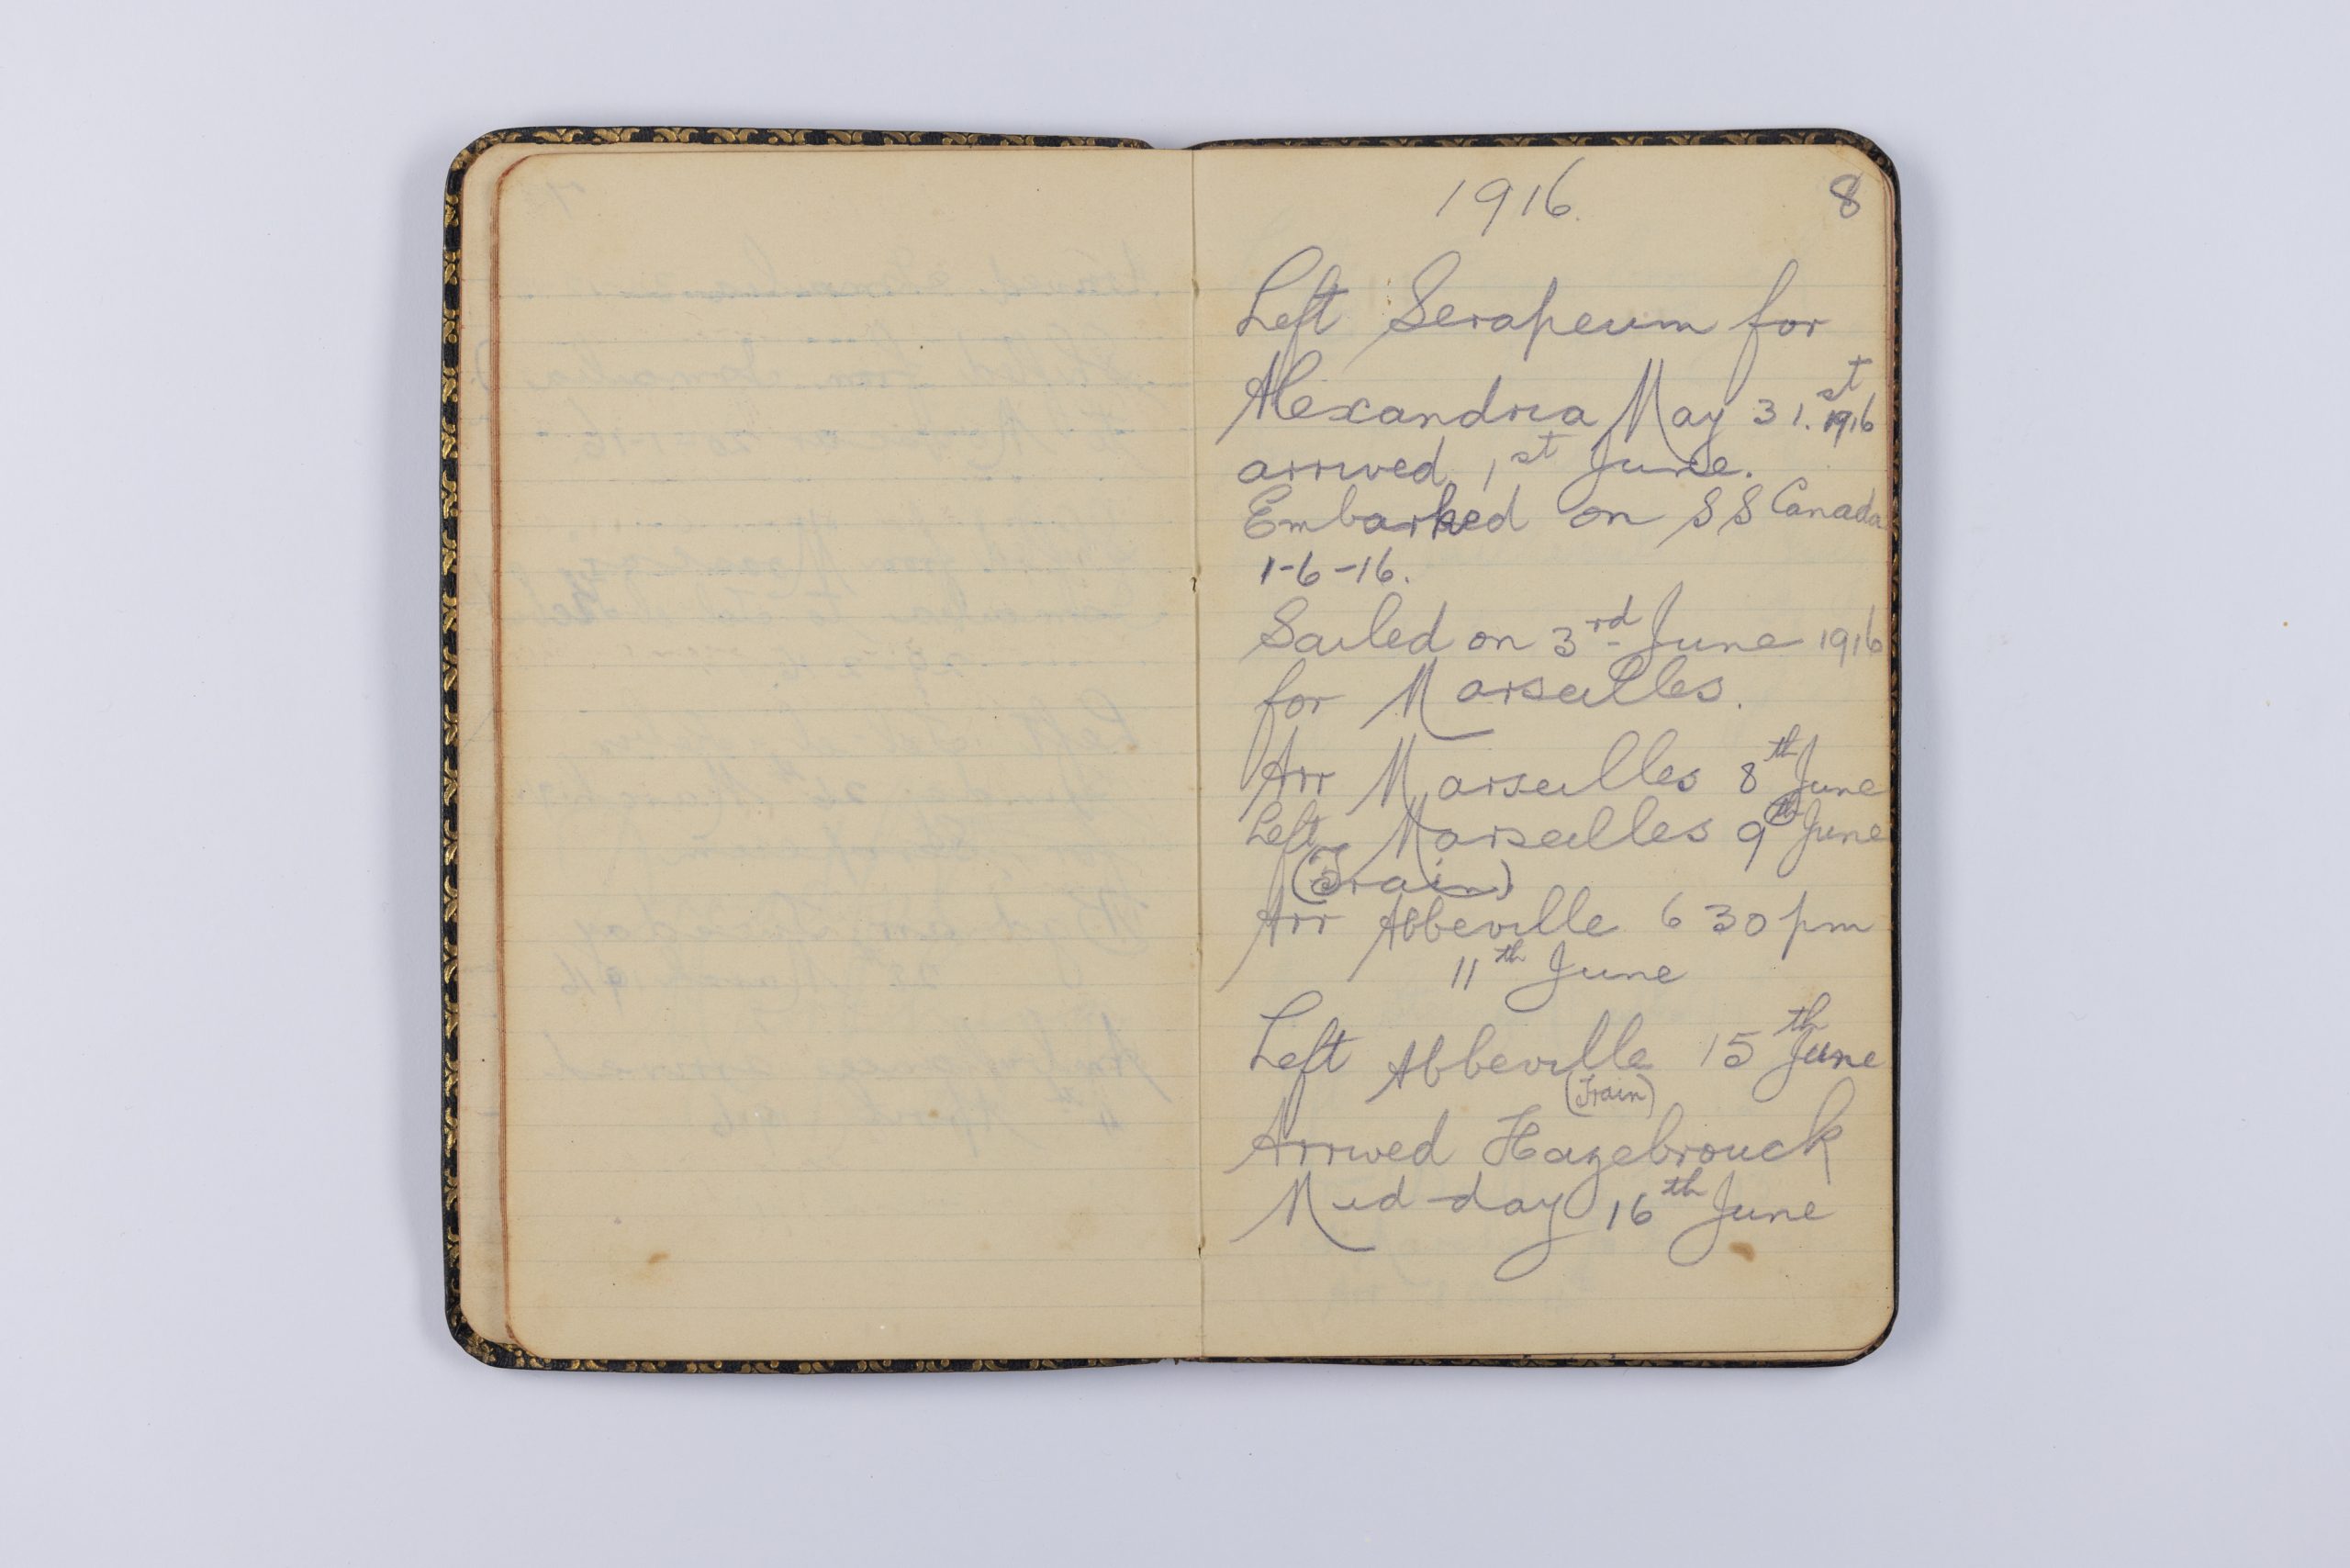 1916.
8
Left Serapeum for
Alexandria May 31.st 1916
arrived 1st June.
Embarked on S S Canada
1-6-16.
Sailed on 3rd June 1916
for Marseilles.
Arr Marseilles 8th June
Left Marseilles 9th June
(Train)
Arr Abbeville 6 30 pm
11th June
Left Abbeville 15th June
(Train)
Arrived Hazebrouck
Mid-day 16th June